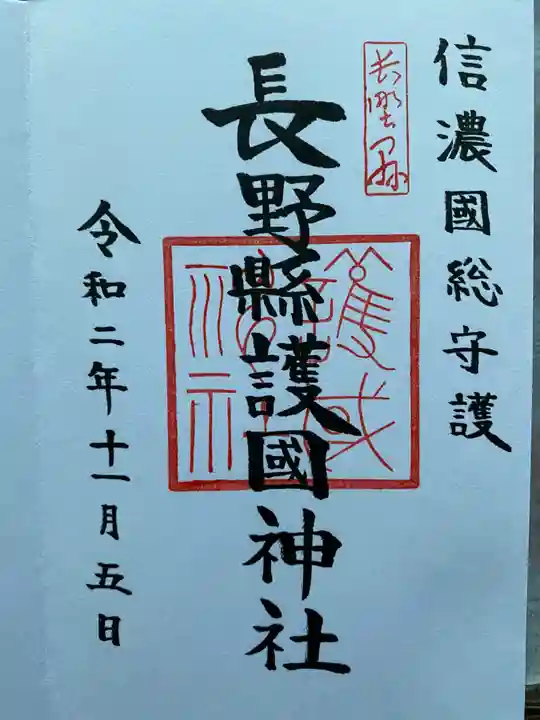 信濃國総守護
長野縣
長野縣護國神社
令和二年十一月五日